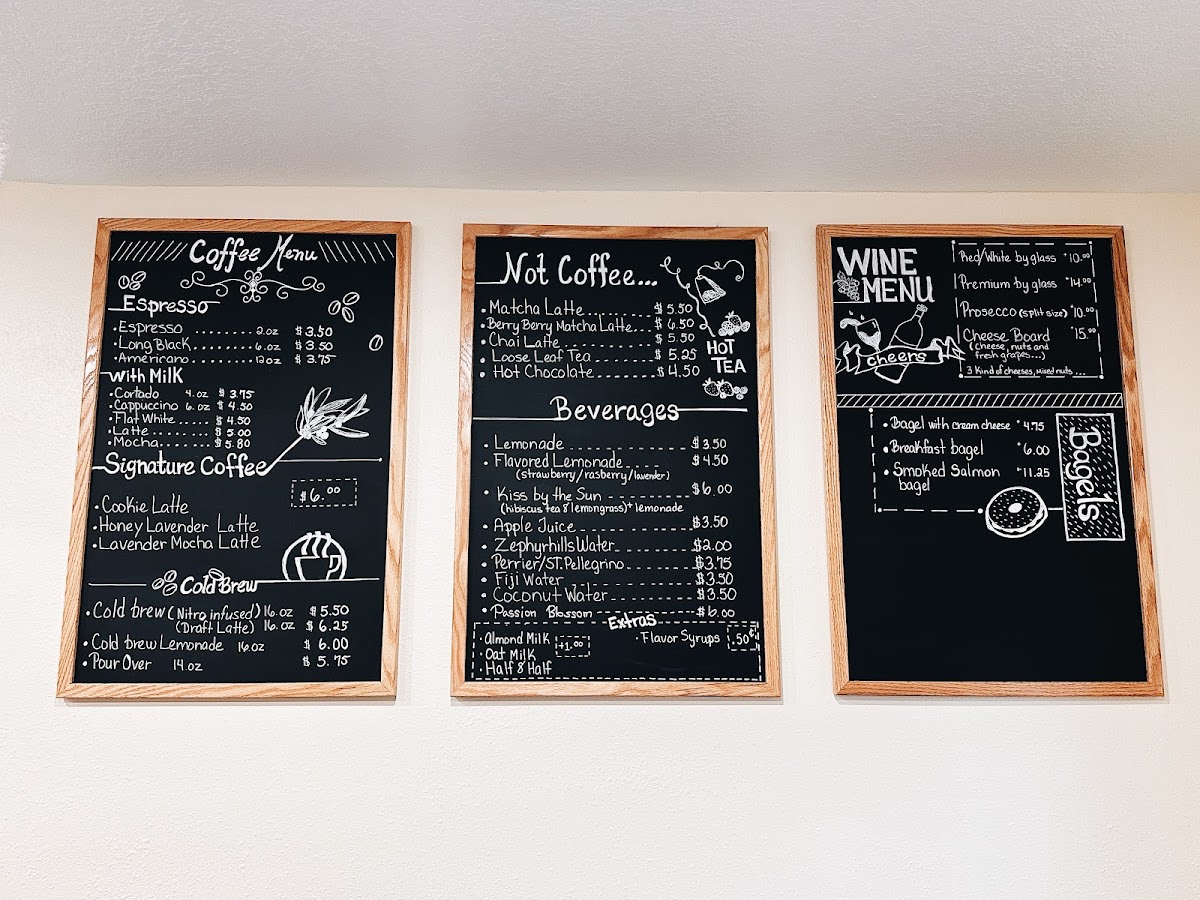 Coffee Menu
Espresso
• Espresso ........ 2 oz $3.50
• Long Black ........ 6 oz $3.50
• Americano ........ 12 oz $3.75
With Milk
• Cortado 4. oz $3.75
• Cappuccino 6. oz $4.50
• Flat White ..... $4.50
• Latte ........ $5.00
• Mocha ....... $5.80
Signature Coffee
$6.00
• Cookie Latte
• Honey Lavender Latte
• Lavender Mocha Latte
Cold Brew
• Cold brew (Nitro infused) 16. oz $5.50
(Draft Latte) 16. oz $6.25
• Cold brew Lemonade 16 oz $6.00
• Pour Over 14. oz $5.75
Not Coffee...
• Matcha Latte $5.50
• Berry Berry Matcha Latte $6.50
• Chai Latte $5.50
• Loose Leaf Tea $5.25
• Hot Chocolate $4.50
HOT
TEA
Beverages
• Lemonade $3.50
• Flavored Lemonade $4.50
(strawberry/rasberry/lavender)
• Kiss by the Sun $6.00
(hibiscus tea & lemongrass)+ lemonade
• Apple Juice $3.50
• Zephyrhills Water $2.00
• Perrier/ST. Pellegrino $3.75
• Fiji Water $3.50
• Coconut Water $3.50
• Passion Blossom $6.00
Extras
• Almond Milk
• Oat Milk +1.00
• Half & Half
• Flavor Syrups .50¢
WINE
MENU
cheers
Red/White by glass $10.00
Premium by glass $14.00
Prosecco (split size) $10.00
Cheese Board $15.00
(cheese, nuts and
fresh grapes...)
3 Kind of cheeses, mixed nuts ...
• Bagel with cream cheese $4.75
• Breakfast bagel $6.00
• Smoked Salmon $11.25
bagel
Bagels